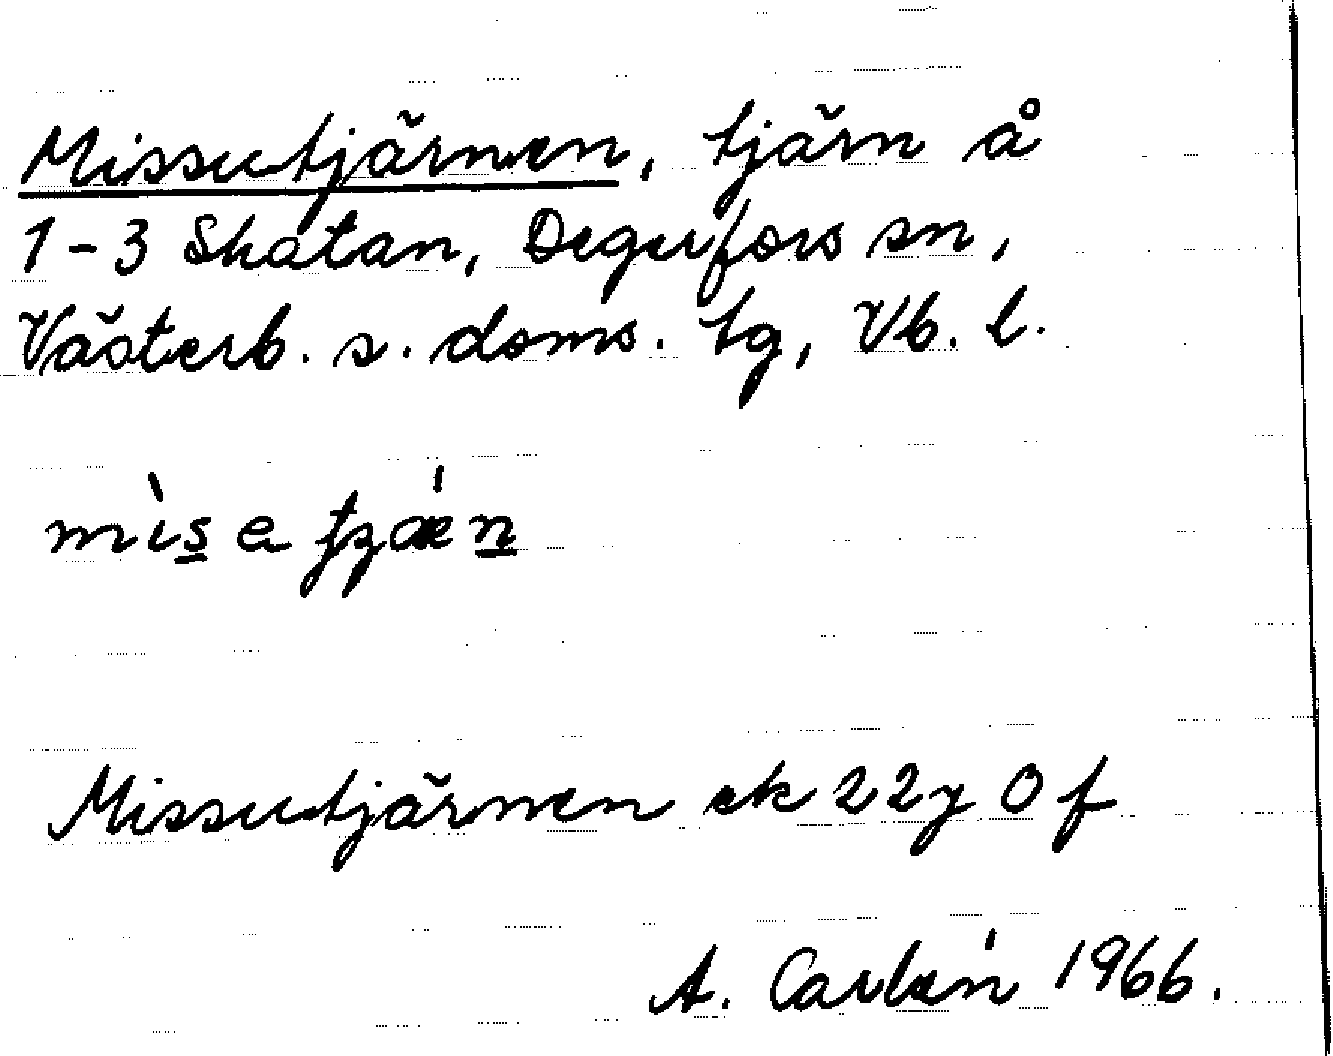 Missutjärnen, tjärn å
1-3 Skatan, Degerfors sn,
Västerb. s. doms. tg, Vb. l.
Missutjärnen ek 22y 0 f
A. Carlén 1966.